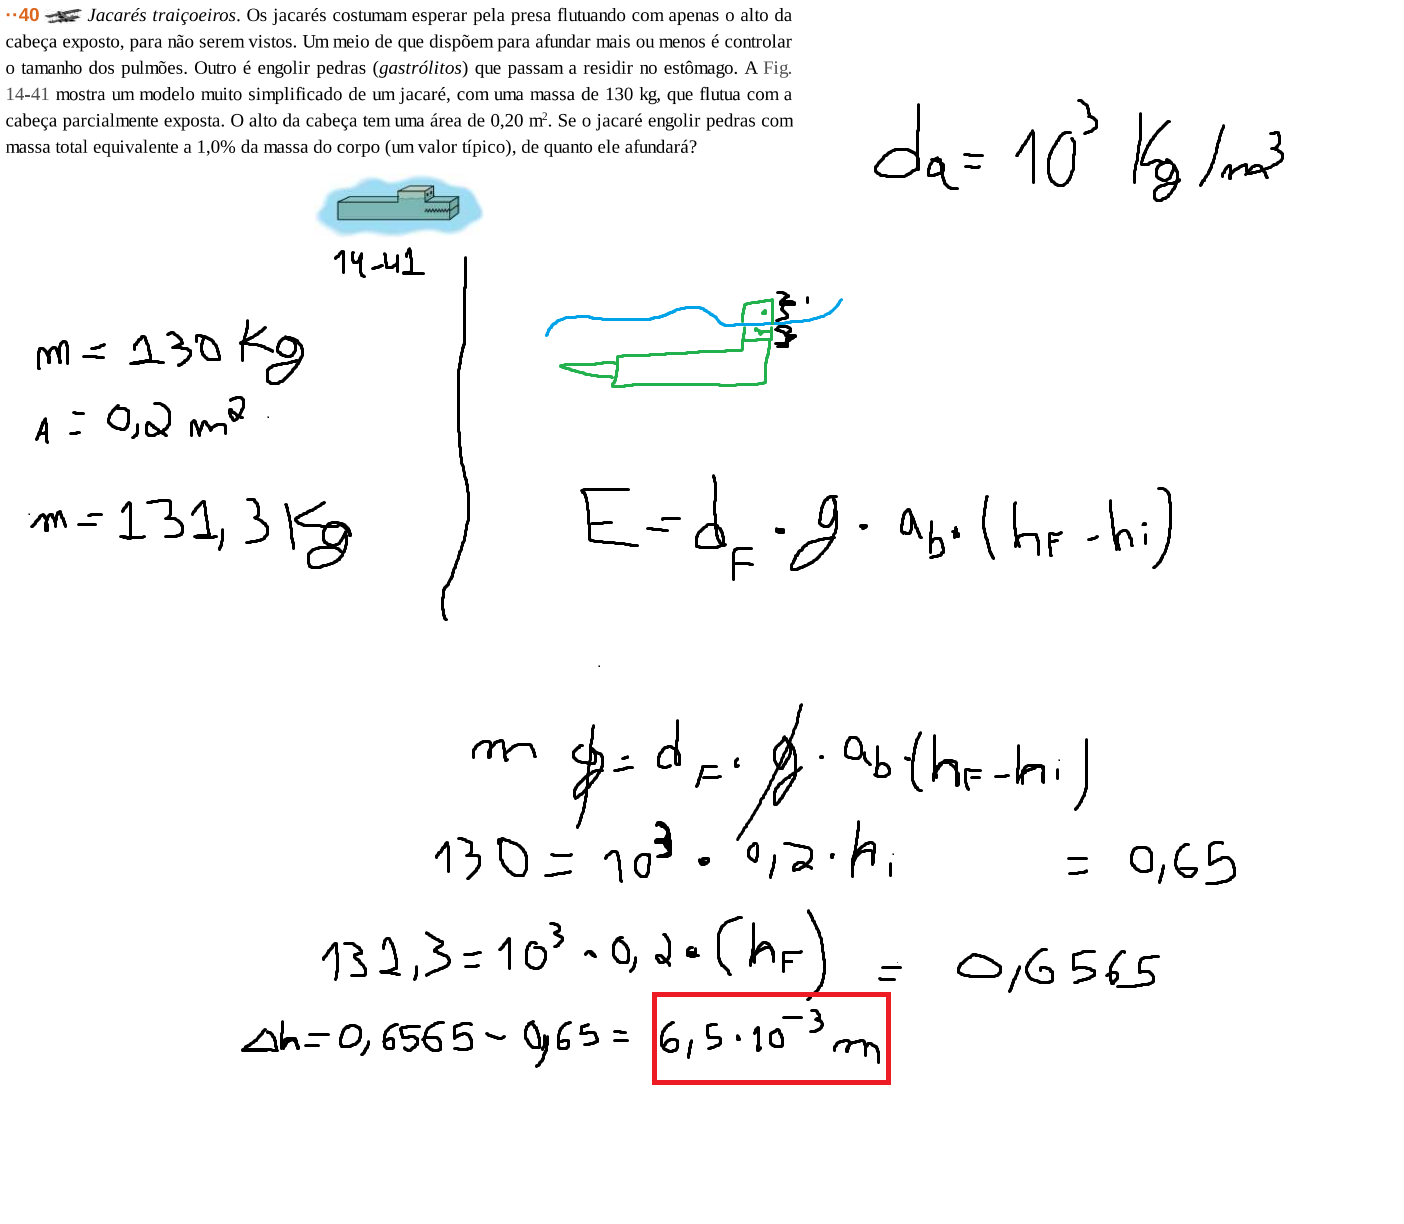 ··40 Jacarés traiçoeiros. Os jacarés costumam esperar pela presa flutuando com apenas o alto da
cabeça exposto, para não serem vistos. Um meio de que dispõem para afundar mais ou menos é controlar
o tamanho dos pulmões. Outro é engolir pedras (gastrólitos) que passam a residir no estômago. A Fig.
14-41 mostra um modelo muito simplificado de um jacaré, com uma massa de 130 kg, que flutua com a
cabeça parcialmente exposta. O alto da cabeça tem uma área de 0,20 m². Se o jacaré engolir pedras com
massa total equivalente a 1,0% da massa do corpo (um valor típico), de quanto ele afundará?
da = 10³ Kg/m³
14-41
m = 130 Kg
A = 0,2 m²
m = 131,3 Kg
E = dF · g · ab · (hF - hi)
m g = dF · g · ab · (hF - hi)
130 = 10³ · 0,2 · hi = 0,65
131,3 = 10³ · 0,2 · (hF) = 0,6565
Δh = 0,6565 - 0,65 = 6,5 · 10⁻³ m